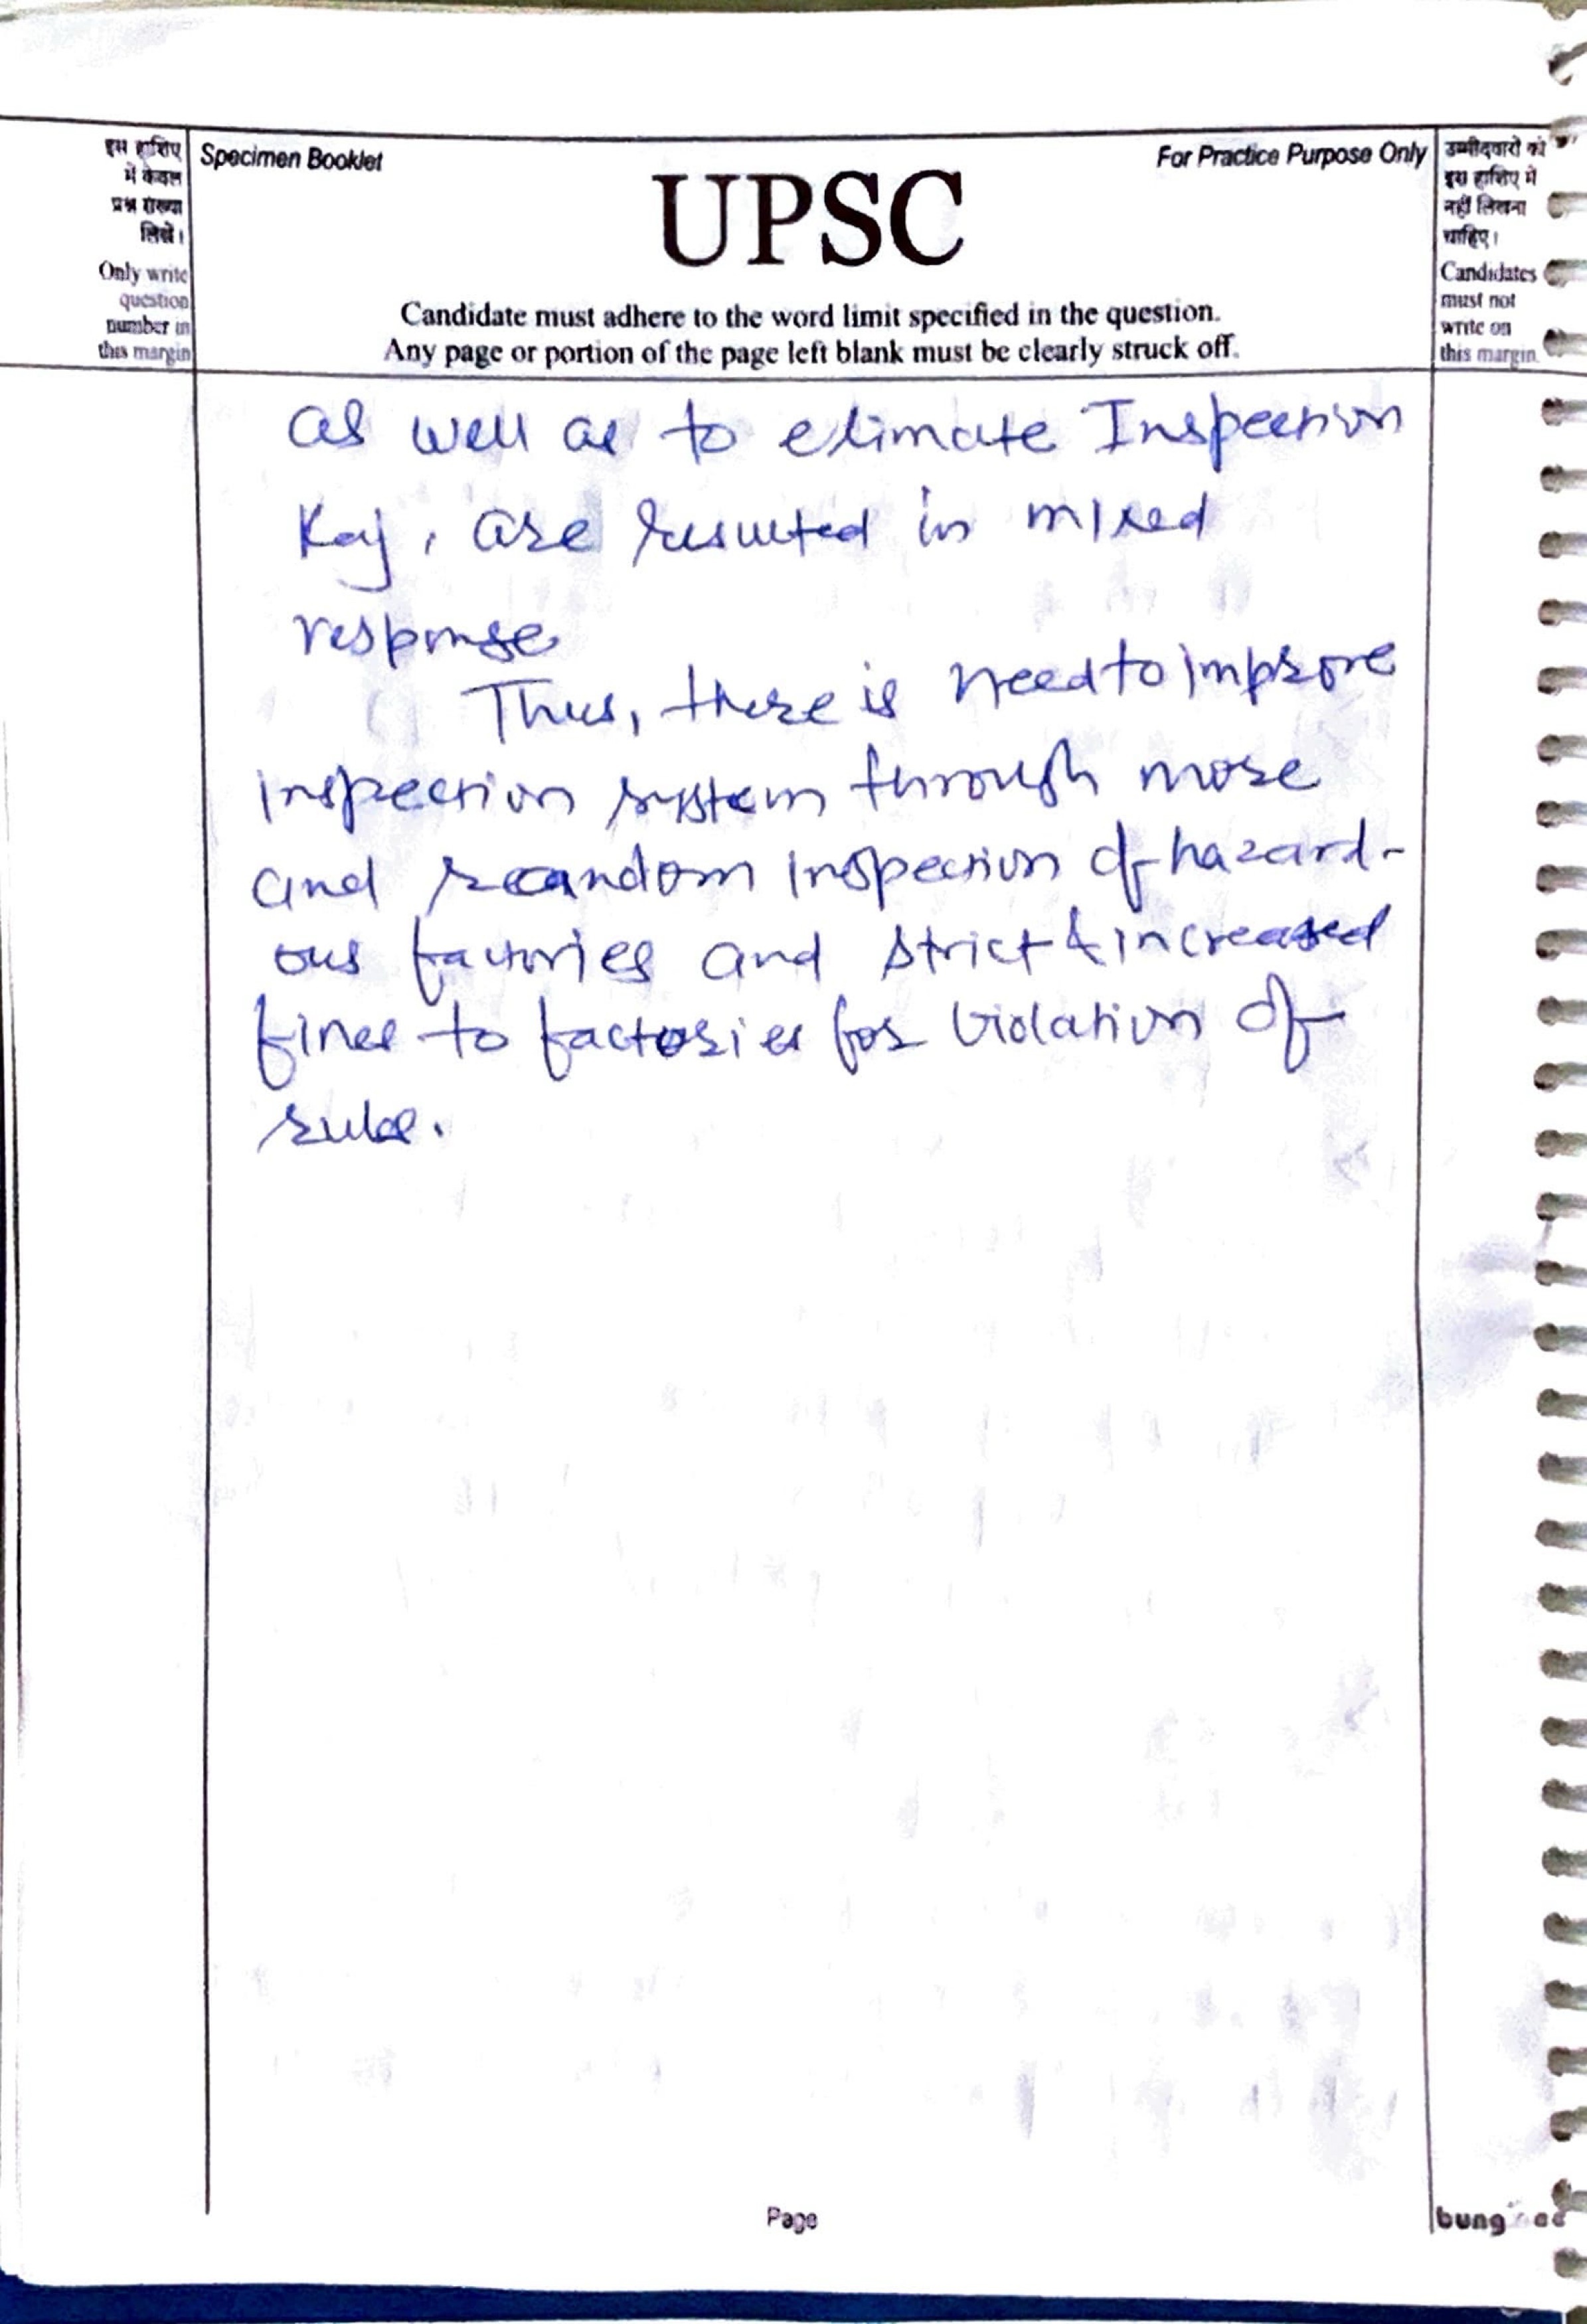 इस हाशिए
में केवल
प्रश्न संख्या
लिखें।
Only write
question
number in
this margin
Specimen Booklet
For Practice Purpose Only
UPSC
Candidate must adhere to the word limit specified in the question.
Any page or portion of the page left blank must be clearly struck off.
उम्मीदवारों को
इस हाशिए में
नहीं लिखना
चाहिए।
Candidates
must not
write on
this margin.
as well as to elimate Inspection
Raj, are resulted in mixed
response
Thus, there is need to improve
inspection system through more
and random inspection of hazard-
ous factories and strict & increased
fines to factories for violation of
rules.
Page